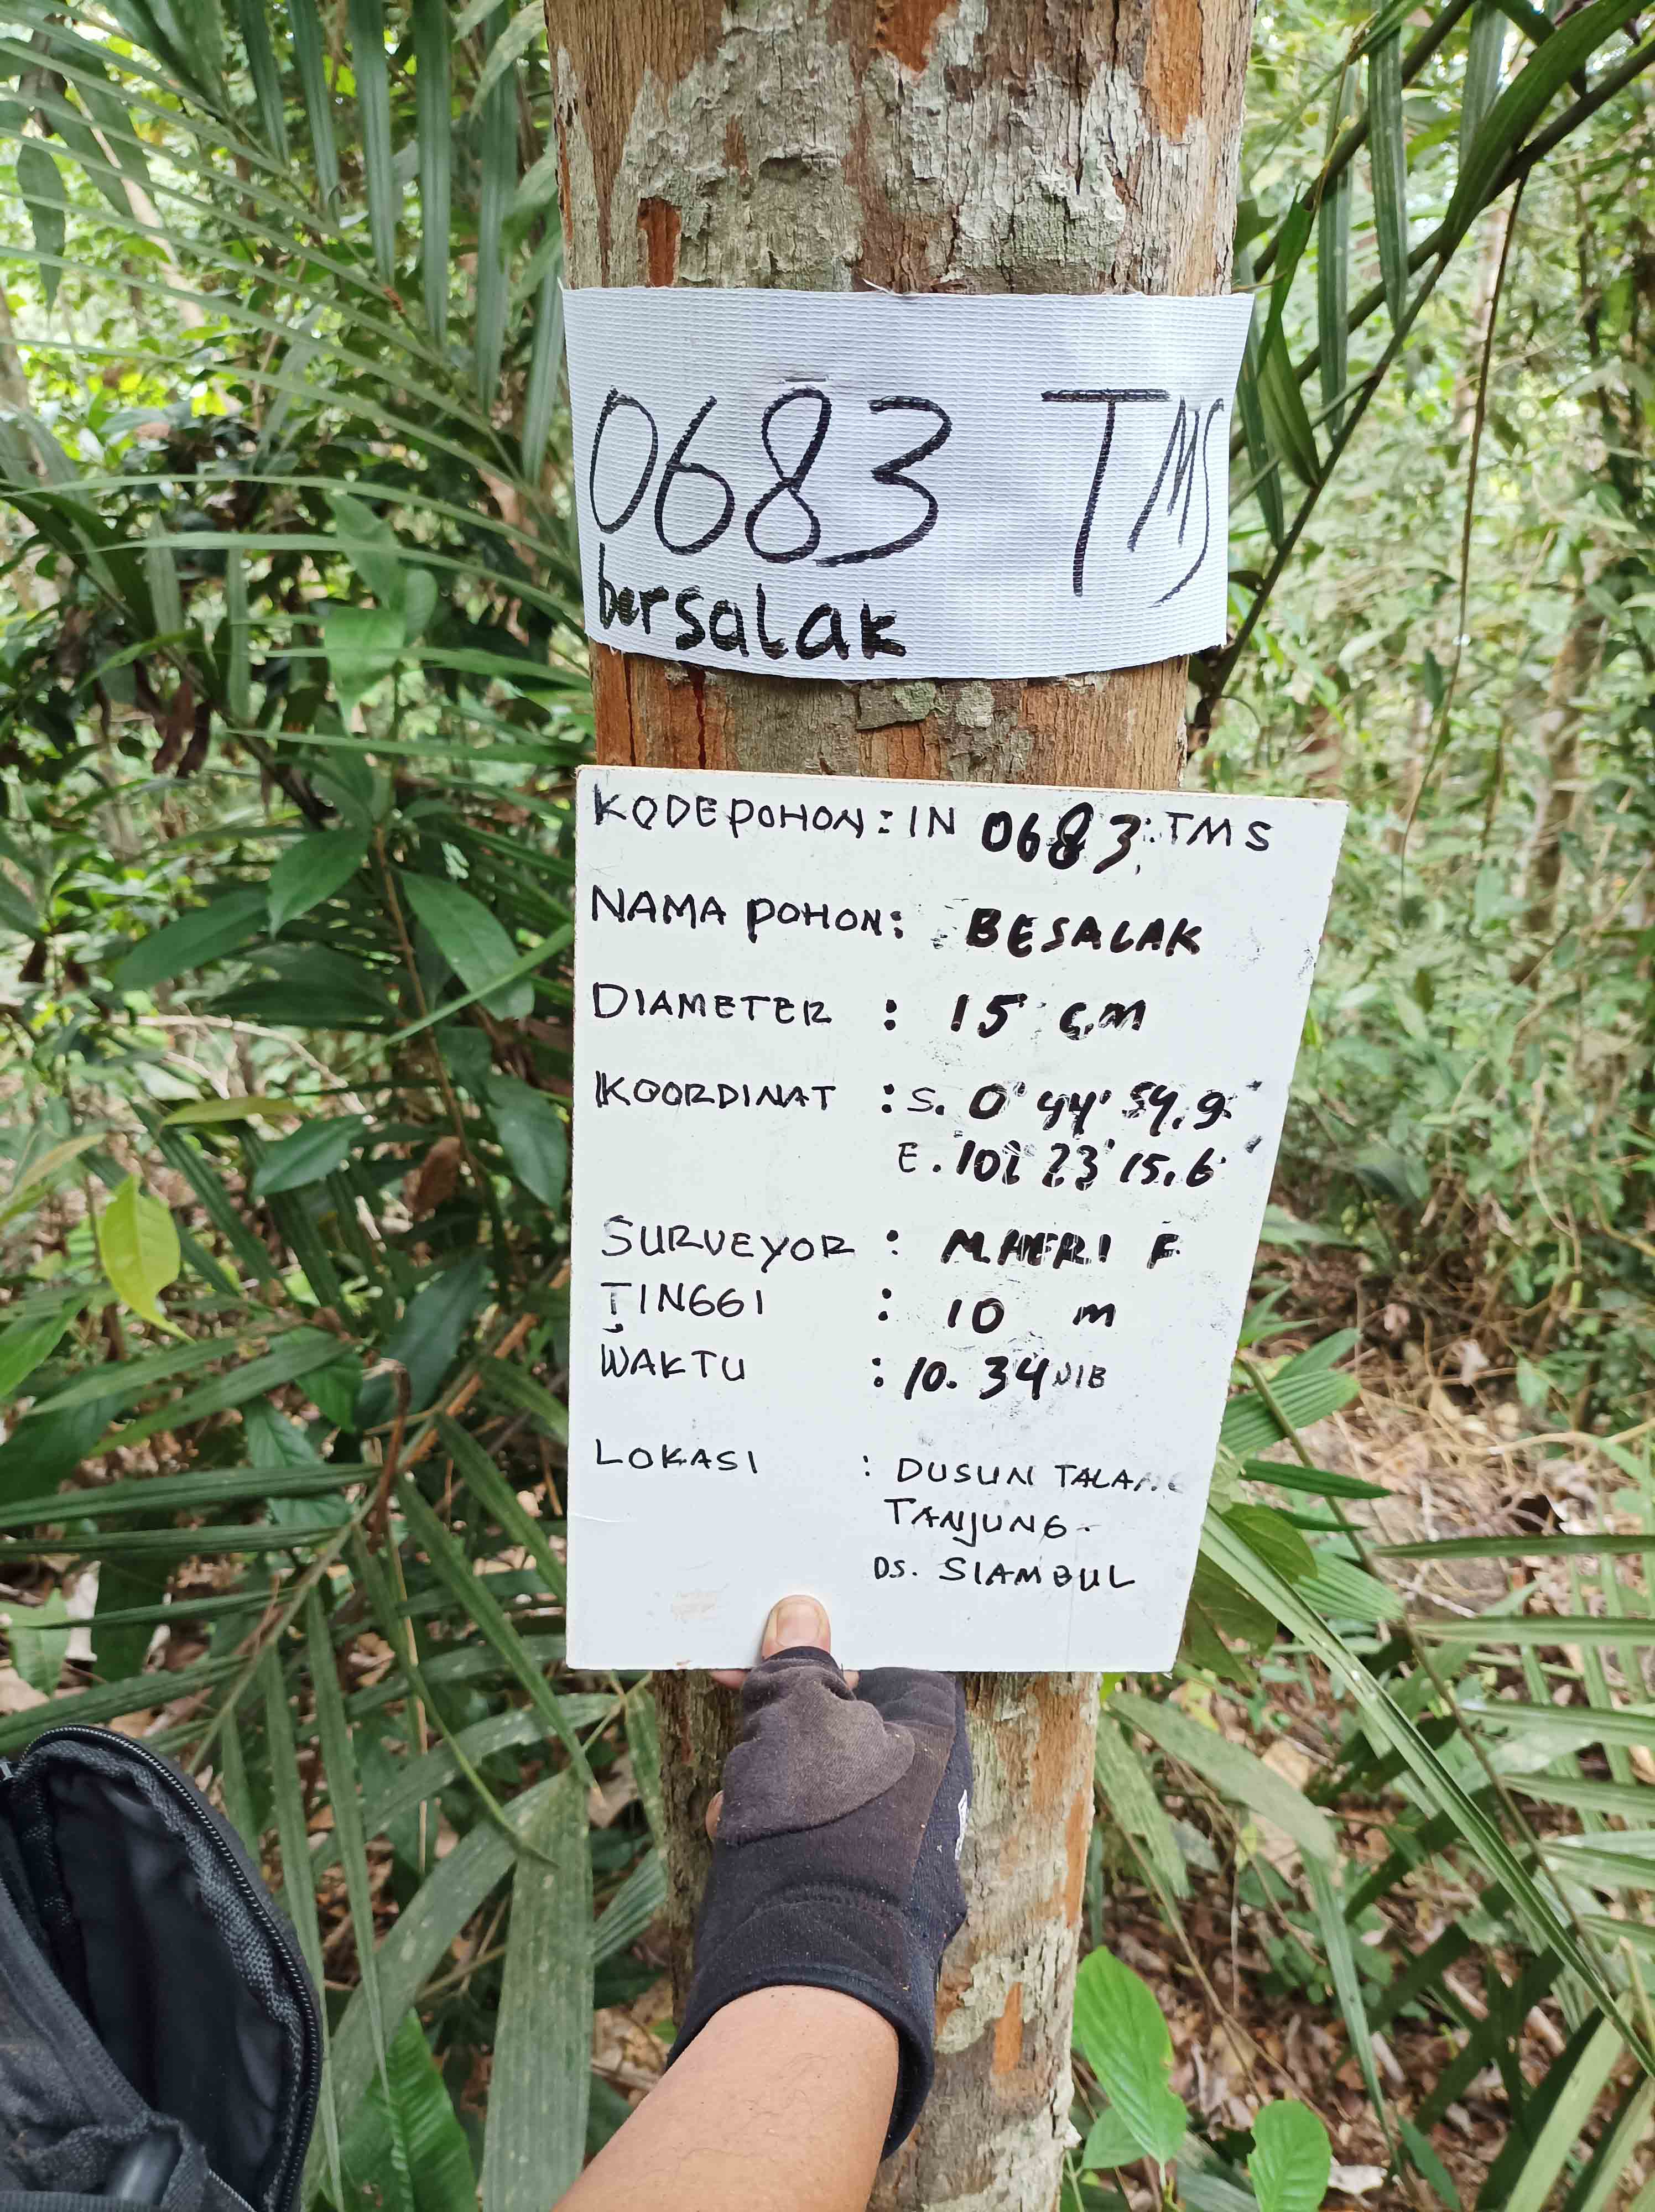 0683 TMS
bersalak
KODE POHON : IN 0683 : TMS
NAMA POHON : BESALAK
DIAMETER : 15 cm
KOORDINAT : S. 0° 44' 54.9"
E. 102° 23' 15.6"
SURVEYOR : M.HERI F
TINGGI : 10 m
WAKTU : 10.34 WIB
LOKASI : DUSUN TALANG
TANJUNG
DS. SIAMBUL